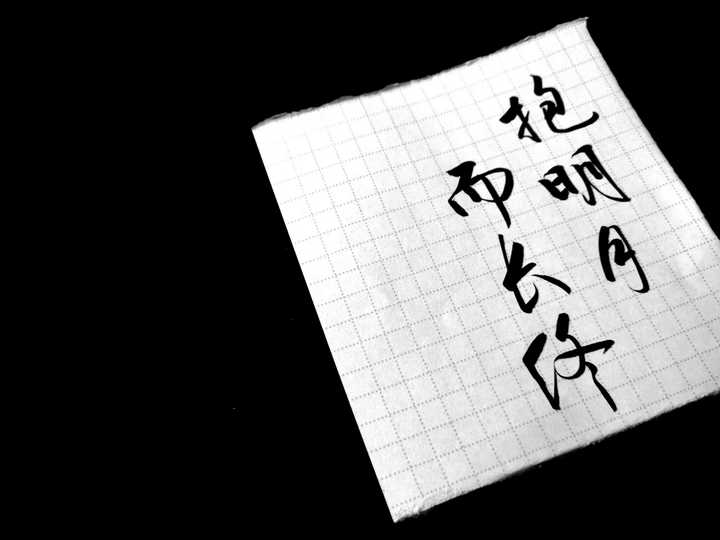 抱明月
而长终